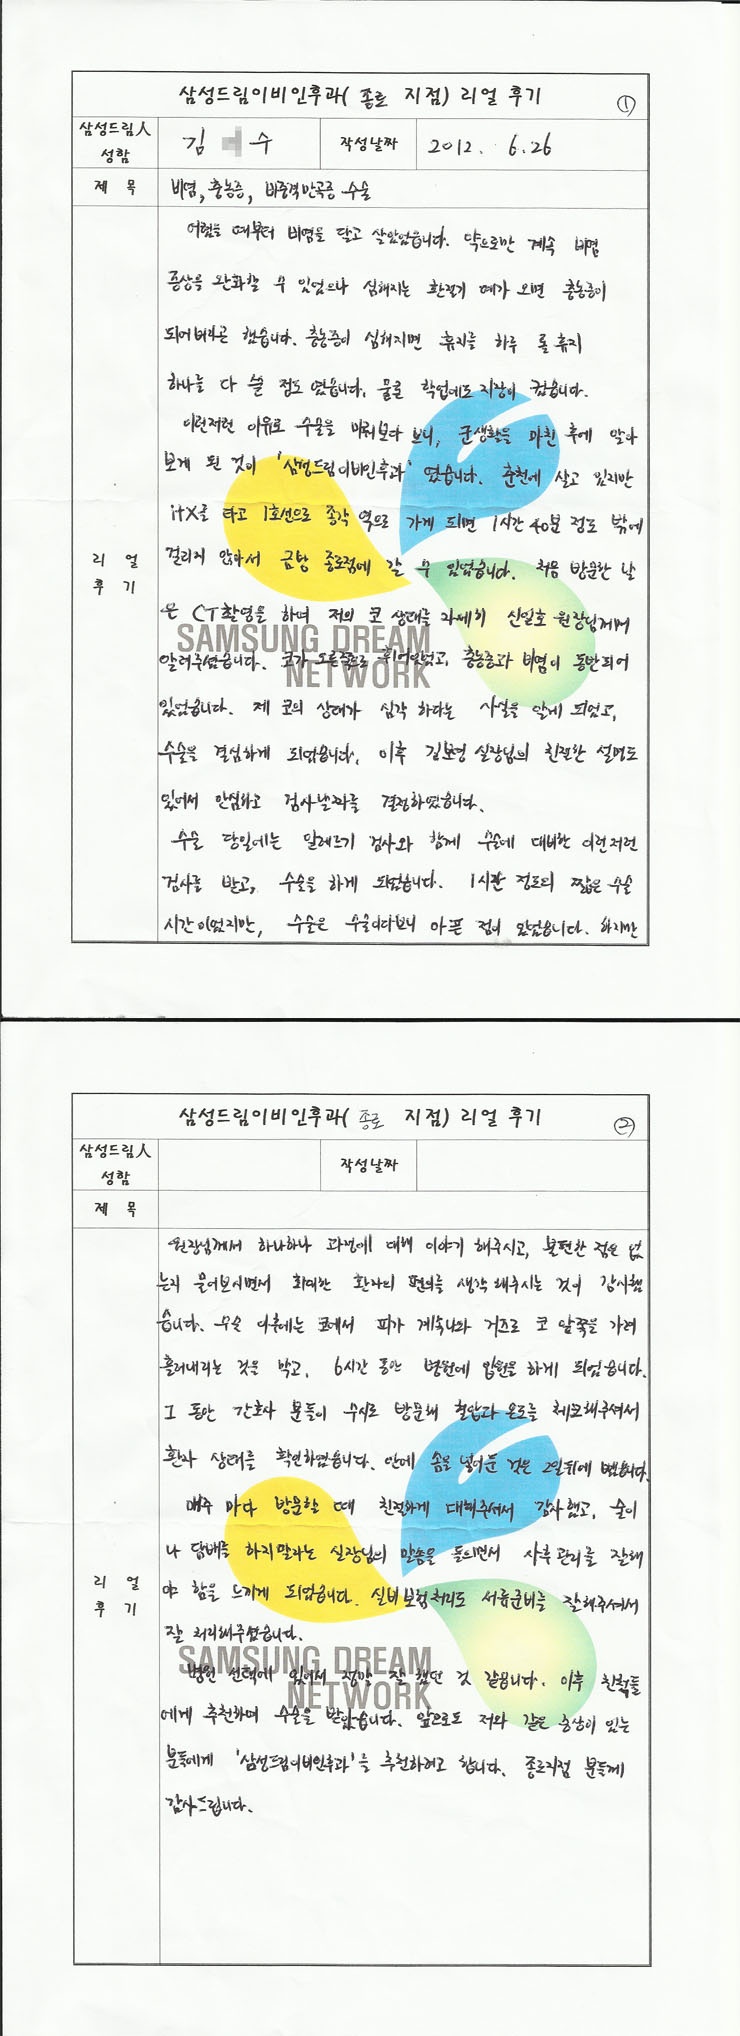 삼성드림이비인후과( 종로 지점) 리얼 후기
①
삼성드림人
성함
김 수
작성날짜
2012. 6.26
제 목
비염, 충농증, 비중격만곡증 수술
어렸을 때부터 비염을 달고 살았었습니다. 약으로만 계속 비염
증상을 완화할 수 있었으나 심해지는 환절기 때가 오면 충농증이
되어버리곤 했습니다. 충농증이 심해지면 휴지를 하루 롤휴지
하나를 다 쓸 정도 였습니다. 물론 학업에도 지장이 컸습니다.
이런저런 이유로 수술을 미뤄보다 보니, 군생활을 마친 후에 알아
보게 된 것이 '삼성드림이비인후과' 였습니다. 춘천에 살고 있지만
itx를 타고 1호선으로 종각 역으로 가게 되면 1시간 40분 정도 밖에
걸리지 않아서 금방 종로점에 갈 수 있었습니다. 처음 방문한 날
은 CT촬영을 하며 저의 코 상태를 자세히 신일호 원장님께서
알려주셨습니다. 코가 오른쪽으로 휘어있었고, 충농증과 비염이 동반되어
있었습니다. 제 코의 상태가 심각 하다는 사실을 알게 되었고,
수술을 결심하게 되었습니다. 이후 김보영 실장님의 친절한 설명도
있어서 안심하고 검사날짜를 결정하였습니다.
수술 당일에는 알레르기 검사와 함께 수술에 대비한 이런저런
검사를 받고, 수술을 하게 되었습니다. 1시간 정도의 짧은 수술
시간이었지만, 수술은 수술이다보니 아픈 점이 있었습니다. 하지만
리 얼
후 기
SAMSUNG DREAM
NETWORK
삼성드림이비인후과( 종로 지점) 리얼 후기
②
삼성드림人
성함
작성날짜
제 목
원장님께서 하나하나 과정에 대해 이야기 해주시고, 불편한 점은 없
는지 물어보시면서 최대한 환자의 편의를 생각해주시는 것이 감사했
습니다. 수술 이후에는 코에서 피가 계속나와 거즈로 코 앞쪽을 가려
흘러내리는 것을 막고, 6시간 동안 병원에 입원을 하게 되었습니다.
그 동안 간호사 분들이 수시로 방문해 혈압과 온도를 체크해주셔서
환자 상태를 확인하였습니다. 안에 솜을 넣어둔 것은 2일뒤에 뺐습니다.
매주 마다 방문할 때 친절하게 대해주셔서 감사했고, 술이
나 담배를 하지말라는 실장님의 말씀을 들으면서 사후관리를 잘해
야 함을 느끼게 되었습니다. 실비보험처리도 서류준비를 잘해주셔서
잘 처리해주셨습니다.
병원 선택에 있어서 정말 잘 했던 것 같습니다. 이후 친척들
에게 추천하며 수술을 받았습니다. 앞으로도 저와 같은 증상이 있는
분들에게 '삼성드림이비인후과'을 추천하려고 합니다. 종로지점 분들께
감사드립니다.
리 얼
후 기
SAMSUNG DREAM
NETWORK